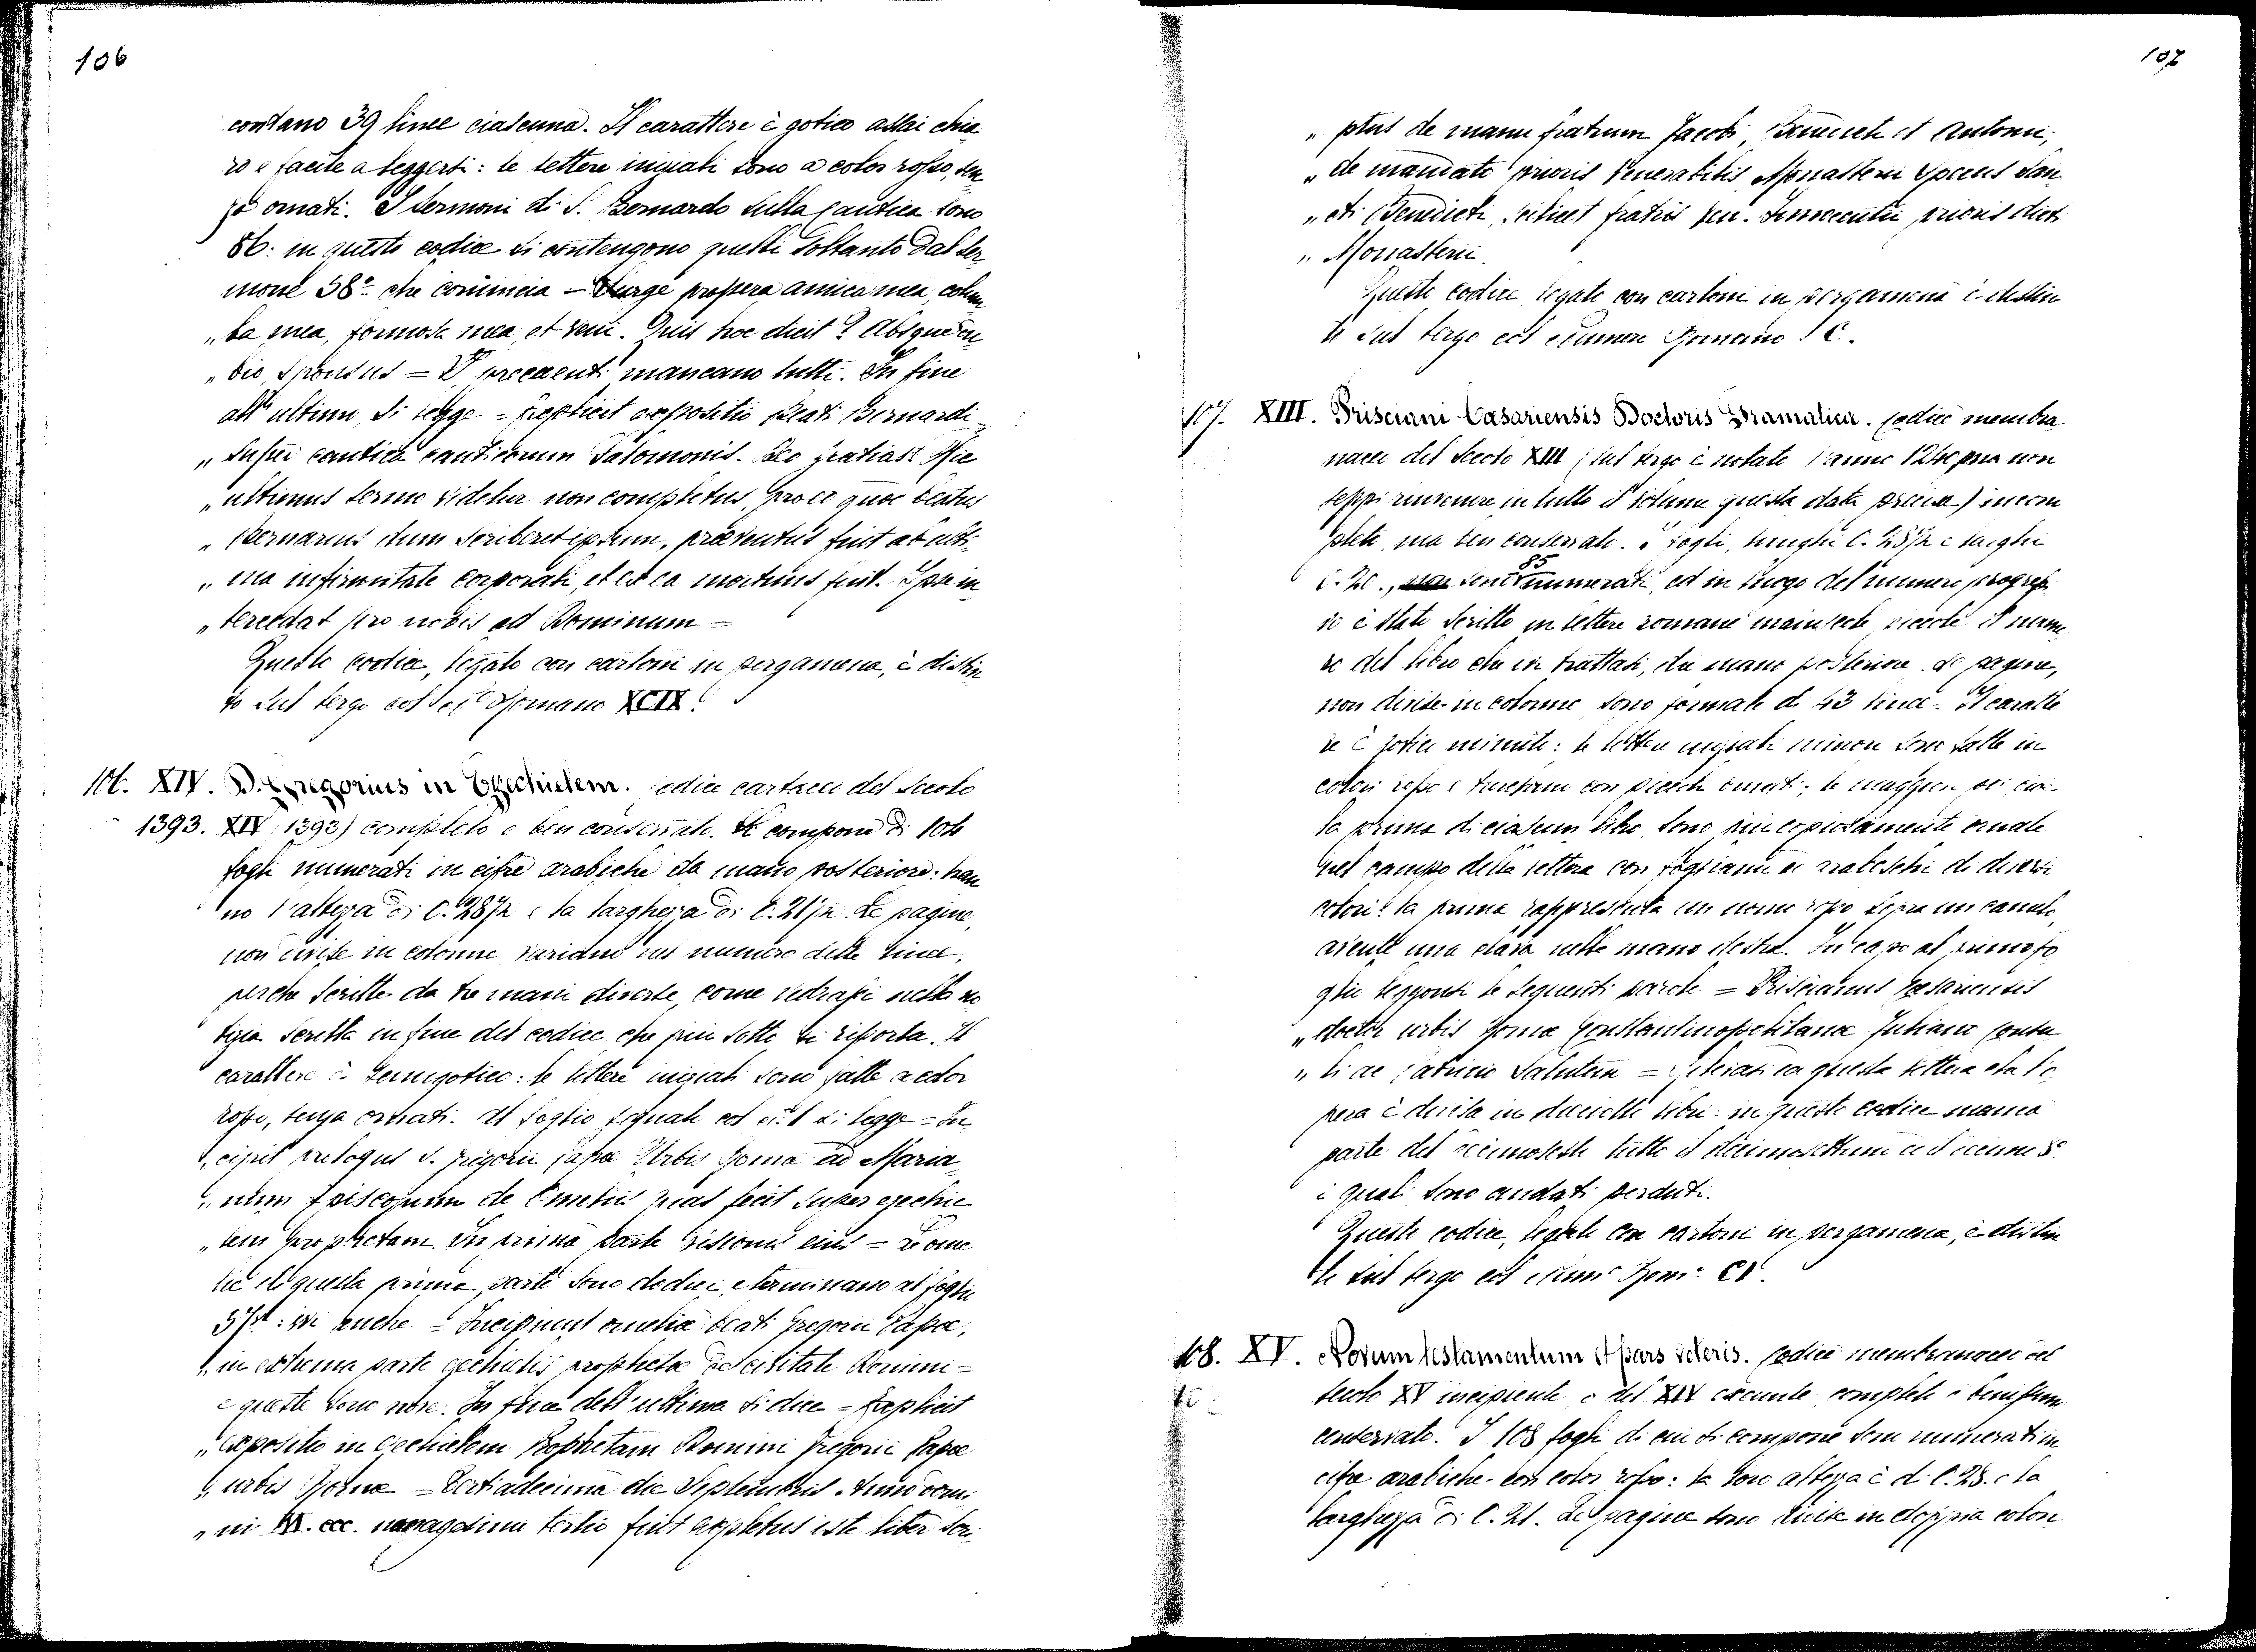 106
contano 39 linee ciascuna. Il carattere è gotico assai chia
ro e facile a leggersi: le lettere iniziali sono a color rosso, sen
za ornati. I Sermoni di S. Bernardo sulla Cantica sono
86: in questo codice si contengono quelli soltanto dal Ser
mone 58º che comincia = Surge propera amica mea, colum
„ ba mea, formosa mea, et veni. Quis hoc dicit? Absque du
„ bio, Sponsus = I precedenti mancano tutti. In fine
all' ultimo, si legge = Explicit expositio Beati Bernardi
„ Super cantica canticorum Salomonis. Deo gratias. Hic
„ ultimus sermo videtur non completus, pro eo quod beatus
„ Bernardus dum scriberet ipsum, præventus fuit ab ulti
„ ma infirmitate corporali, et ex ea mortuus fuit. Ipse in
„ tercedat pro nobis ad Dominum =
Questo codice, legato con cartoni in pergamena, è distin
to sul tergo col nº Romano XCIX.
106. XIV. D. Gregorius in Ezechielem. Codice cartaceo del Secolo
1393. XIV (1393) completo e ben conservato. Si compone di 106
fogli numerati in cifre arabiche da mano posteriore: han
no l'altezza di C. 28½ e la larghezza di C. 21½. Le pagine,
non divise in colonne variano nel numero delle linee,
perchè scritte da tre mani diverse, come vedrassi nella no
tizia scritta in fine del codice che più sotto si riporta. Il
carattere è semigotico: le lettere iniziali sono fatte a color
rosso, senza ornati. Al foglio segnato col nº 1 si legge = In
„ cipit prologus S. Gregorii papæ Urbis Romæ ad Maria
„ num Episcopum de Omeliis quas fecit super ezechie
„ lem prophetam. In prima parte visionis eius = Le ome
lie di questa prima parte sono dodici, e terminano al foglio
57 : ivi anche = Incipiunt omeliæ beati Gregorii Papæ,
„ in extrema parte ezechielis prophetæ de civitate Domini =
e queste sono nove. In fine dell'ultima si dice = Explicit
„ expositio in Ezechielem Prophetam Domini Gregorii Papæ
„ urbis Romæ = Tertiadecima die Septembris Anno domi
„ ni M. ccc. nonagesimo tertio fuit expletus iste liber scri
107
„ ptus de manu fratrum Jacobi, Benedicti et Antonii,
„ de mandato prioris Venerabilis Monasterii Specus San
„ cti Benedicti, scilicet fratris Innocentii prioris dicti
„ Monasterii.
Questo codice legato con cartoni in pergamena è distin
to sul tergo col numero Romano C.
107. XIII. Prisciani Cæsariensis Doctoris Gramatica. Codice membra
naceo del Secolo XIII (sul tergo è notato l'anno ma non
seppi rinvenire in tutto il volume questa data precisa) incom
pleto, ma ben conservato. I fogli, lunghi C. 28½ e larghi
C. 20., non sono 85 numerati, ed in luogo del numero progressi
vo è stato scritto in lettere romane maiuscole piccole il nume
ro del libro che ivi trattasi, da mano posteriore. Le pagine,
non divise in colonne sono formate di 43 linee. Il caratte
re è gotico minuto: le lettere iniziali minori sono fatte in
colori rosso e turchino con piccoli ornati; le maggiori poi cioè
la prima di ciascun libro, sono più copiosamente ornate
nel campo della lettera con fogliami ed arabeschi di diversi
colori: la prima rappresenta un uomo sopra un cavallo,
avente una clava nella mano destra. In capo al primo fo
glio leggonsi le seguenti parole = Priscianus Cæsariensis
„ doctor urbis Romæ Constantinopolitanæ Juliano Consu
„ li ac Patricio Salutem = da questa lettera che l'o
pera è divisa in diciotto libri: in questo codice manca
parte del decimosesto tutto il decimosettimo ed il decimo 8º
i quali sono andati perduti.
Questo codice, legato con cartoni in pergamena, è distin
to sul tergo col num.º Rom.º CI.
108. XV. Novum testamentum et pars veteris. Codice membranaceo del
Secolo XV incipiente o del XIV exeunte completo e benissimo
conservato. I 108 fogli di cui si compone sono numerati in
cifre arabiche con color rosso: la loro altezza è di C. 28. e la
larghezza di C. 21. Le pagine sono divise in doppia colon